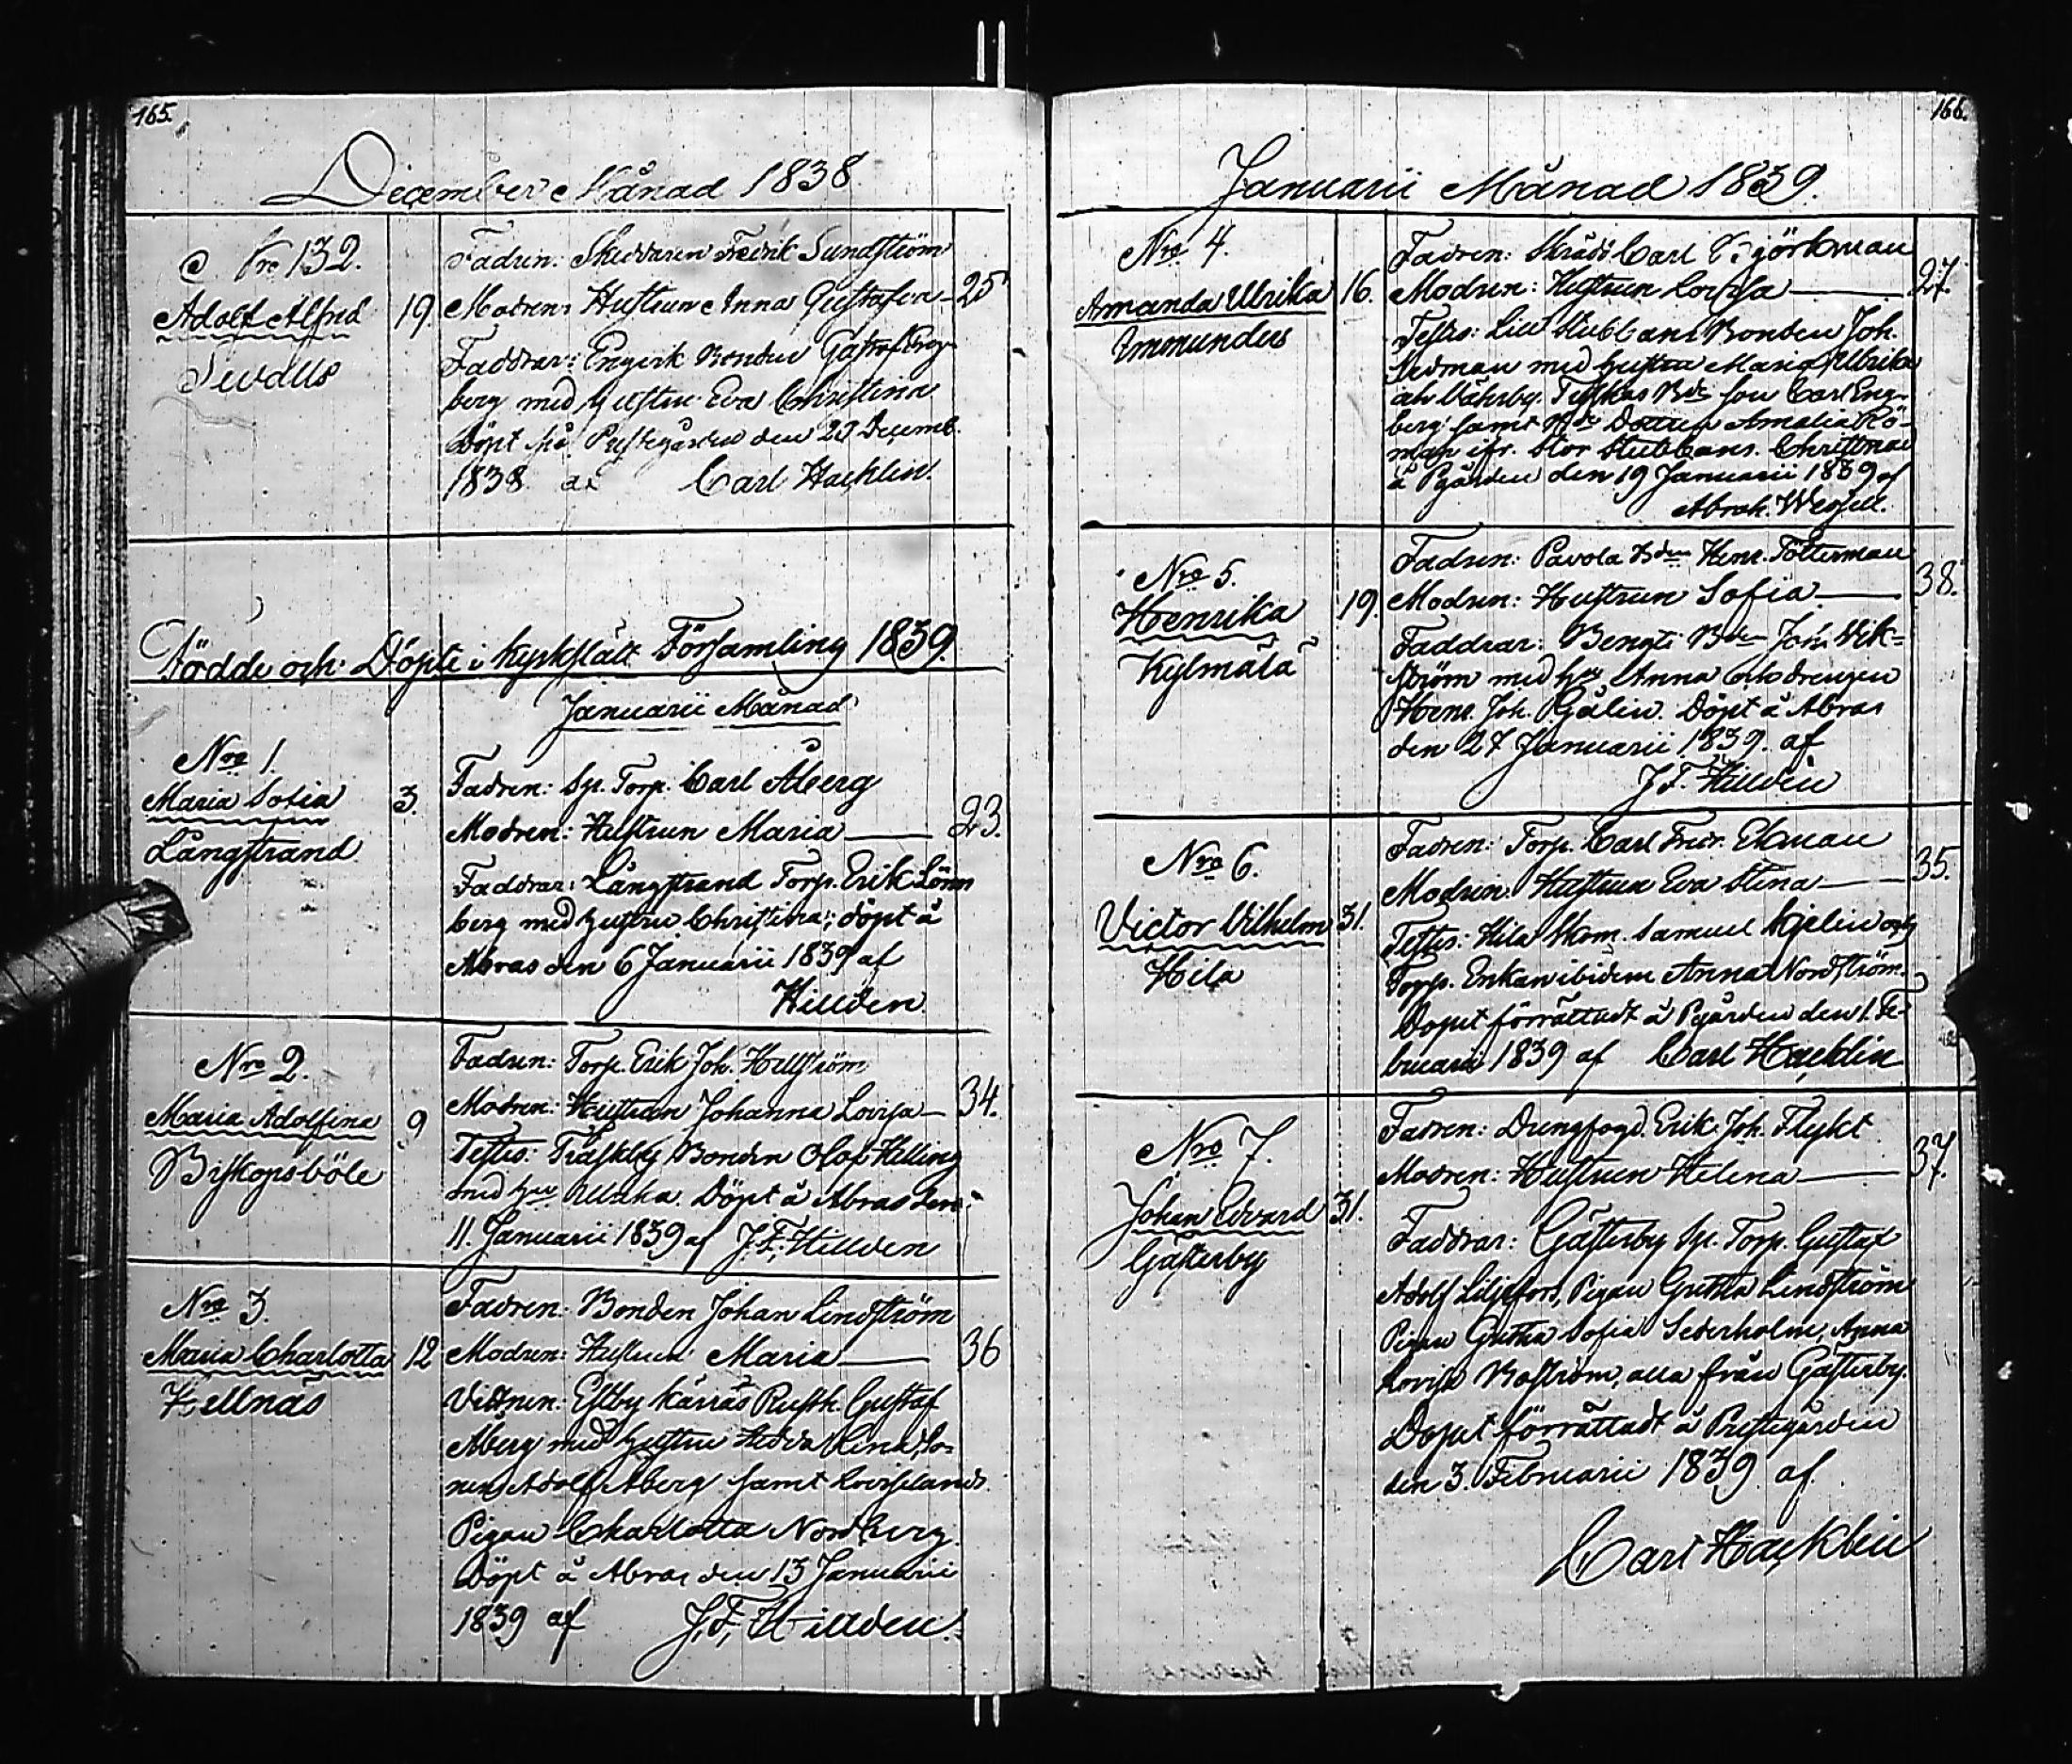 165.
December Månad 1838
Nro 132.
Adolf Alfred
Sundsb
19.
Fadren: Skeddaren Fredrik Sundström
Modren: Hustrun Anna Gustafva 25
Faddrar: Engvik Bonden Gustaf
berg med hustru Eva Christina
Döpt på Prestegården den 27 Decemb.
1838 af Carl Hacklin.
Födde och Döpte i Kyrkslätt Församling 1839.
Januarii Månad
Nro 1.
Maria Sofia
Långstrand
3.
Fadren: Sp. Torp. Carl Åberg
Modren: Hustrun Maria 23.
Faddrar: Långstrand Torp. Erik Lönn
berg med hustru Christina; döpt å
Abras den 6 Januarii 1839 af
Hillden
Nro 2.
Maria Adolfina
Biskopsböle
9
Fadren: Torp. Erik Joh. Hellström
Modren: Hustrun Johanna Lovisa 34.
Testes: Träskby Bonden Olof Helling
med hu Ulrika. Döpt å Abras den
11. Januarii 1839 af J. F. Hillden
Nro 3.
Maria Charlotta
Hellnäs
12
Fadren: Bonden Johan Lindström
Modren: Hustrun Maria 36
Vittnen: Estby Kärrås Rusth. Gustaf
Åberg med hustru Hedda Lena, So-
nen Adolf Åberg samt Loviselands
Pigan Charlotta Nordberg.
Döpt å Abras den 13 Januarii
1839 af J. F. Hillden.
166.
Januarii Månad 1839.
Nro 4.
Amanda Ulrika
Immunders
16.
Fadren: Skräd. Carl Björkman
Modren: Hustrun Lovisa 27.
Testes: Lill Stubbans Bonden Joh.
Sedman med hustru Maria Ulrika
och Båhrby Bde son Carl Eng-
berg samt Bde Dottren Amalia Rö-
man ifr. Stor Stubbans. Christnad
å Pgården den 19 Januarii 1839 af
Abrah. Wessell.
Nro 5.
Henrika
Kylmälä
19.
Fadren: Pavola Bden Henr. Tötterman
Modren: Hustrun Sofia 38.
Faddrar: Bengts Bden Joh. Wik-
ström med hu Anna och drengen
Henr. Joh. Pgälin. Döpt å Abras
den 27 Januarii 1839. af
J. F. Hillden
Nro 6.
Victor Vilhelm
Hila
31.
Fadren: Torp. Carl Fredr. Ekman
Modren: Hustrun Eva Stina 35.
Testes: Hila Skom. Samuel Hjelin och
Torp. Enkan ibidem Anna Nordström.
Dopet förrättadt å Pgården den 1. Fe-
bruarii 1839 af Carl Hacklin
Nro 7.
Johan Edvard
Gästerby
31.
Fadren: Drengfogd. Erik Joh. Flykt
Modren: Hustrun Helena 37.
Faddrar: Gästerby Sp. Torp. Gustaf
Adolf Liljefors, Pigan Gustava Lindström
Pigan Gustava Sofia Sederholm, Anna
Lovisa Boström, alla från Gästerby.
Dopet förrättadt å Prestegården
den 3. Februarii 1839 af
Carl Hacklin